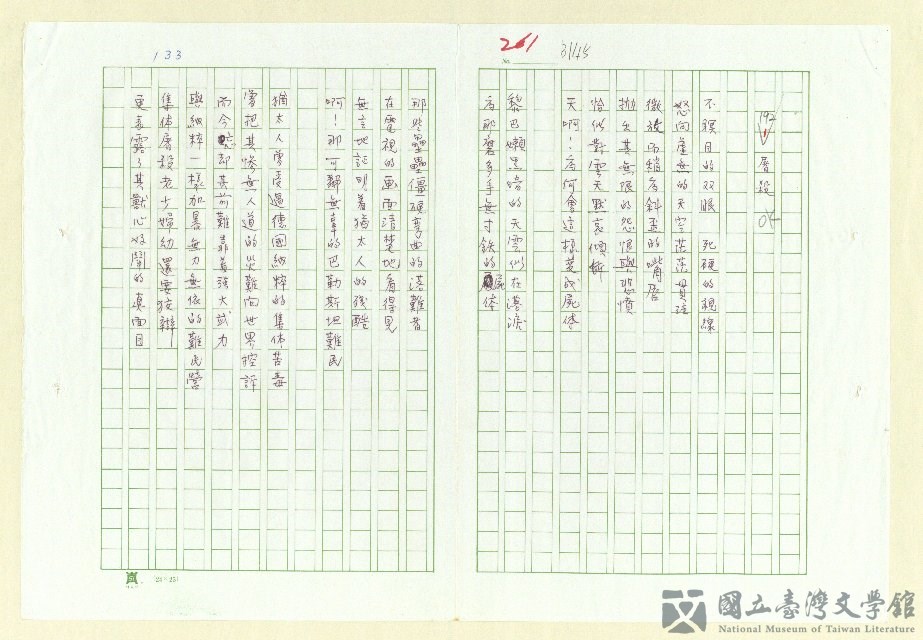 133
261
31145
No.
192
屠殺
04
不瞑目的双眼 死硬的視線
怒向虛無的天空茫茫貫注
微微而稍為斜歪的嘴唇
拋出其無限的怨恨與悲憤
恰似對雲天默哀傾訴
天啊!為何會這樣變成屍体
黎巴嫩黑暗的天雲似在淚
為那麼多手無寸鉄的屍体
那些壘壘僵硬弯曲的遇難者
在電視的画面清楚地看得見
無言地証明着猶太人的残酷
啊!那可憐無辜的巴勒斯坦難民
猶太人曾受過德國納粹的集体苦毒
曾把其惨無人道的災難向世界控訴
而今忘却其前難靠着強大武力
與納粹一樣加害無力無依的難民營
集体屠殺老少婦幼還要狡辯
更表露了其獸心好鬪的真面目
國立臺灣文學館
National Museum of Taiwan Literature